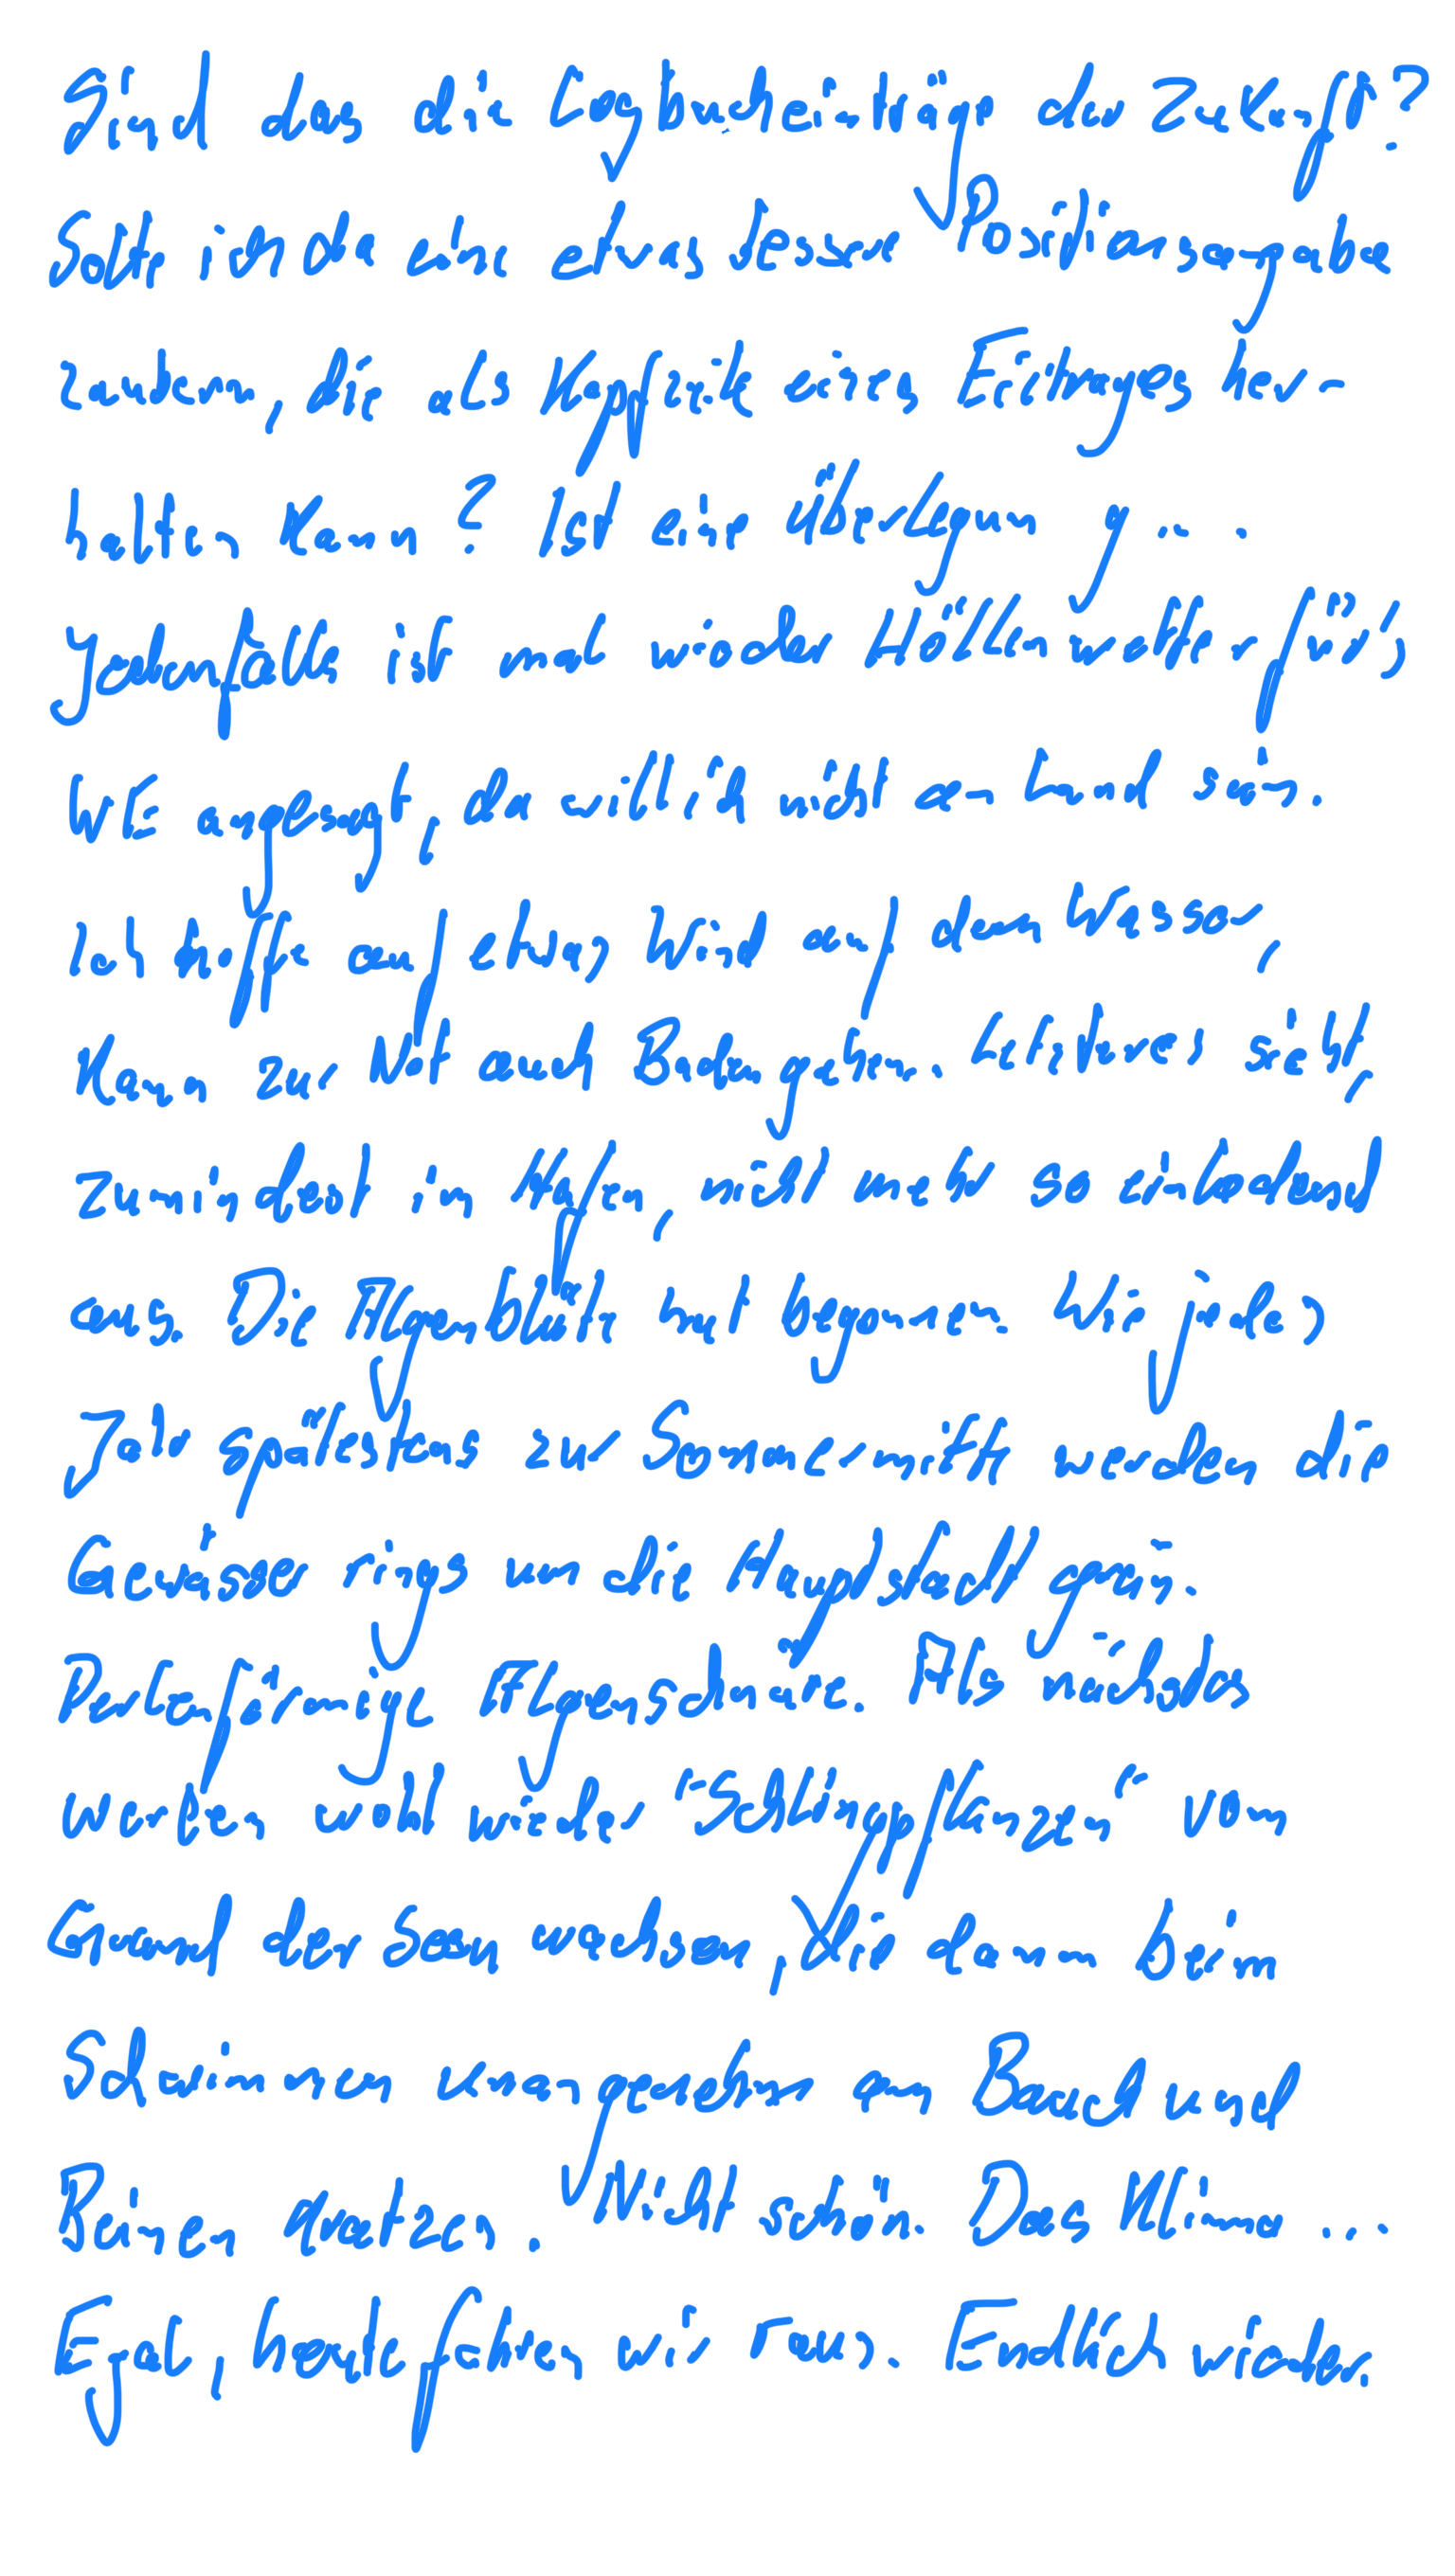 Sind das die Logbucheinträge der Zukunft?
Sollte ich da eine etwas bessere Positionsangabe
zaubern, die als Kopfzeile eines Eitrages her-
halten kann? Ist eine Überlegung...
Jedenfalls ist mal wieder Höllenwetter für's
WE angesagt, da will ich nicht an Land sein.
Ich hoffe auf etwas Wind auf dem Wasser,
kann zur Not auch Baden gehen. Letzteres sieht,
zumindest im Hafen, nicht mehr so einladend
aus. Die Algenblüte hat begonnen. Wie jedes
Jahr spätestens zur Sommermitte werden die
Gewässer rings um die Hauptstadt grün.
Perlenförmige Algenschnüre. Als nächstes
werden wohl wieder "Schlingpflanzen" vom
Grund der Seen wachsen, die dann beim
Schwimmen unangenehm am Bauch und
Beinen kratzen. Nicht schön. Das Klima...
Egal, heute fahren wir raus. Endlich wieder.